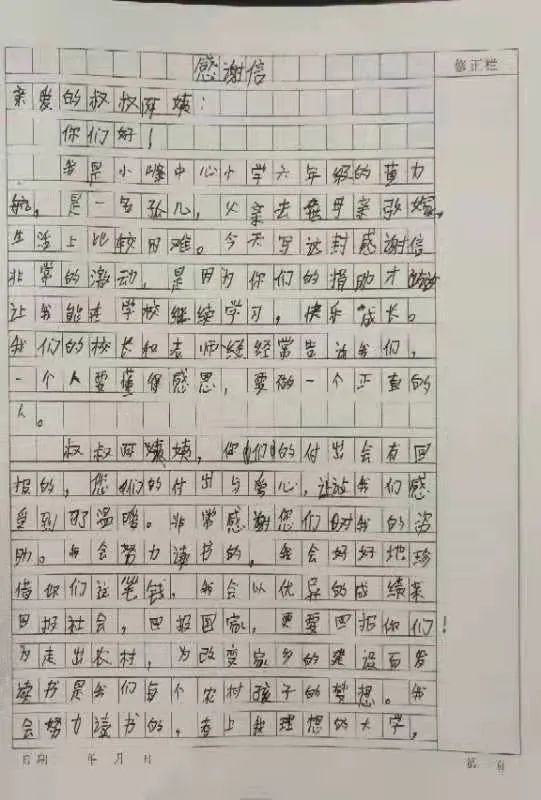 感谢信
修正栏
亲爱的叔叔阿姨：
你们好！
我是小峰中心小学六年级的黄力
航，是一名孤儿，父亲去世母亲改嫁，
生活上比较困难。今天写这封感谢信
非常的激动，是因为你们的捐助才
让我能在学校继续学习，快乐成长。
我们的校长和老师经常告诉我们，
一个人要懂得感恩，要做一个正直的
人。
叔叔阿姨，你们的付出会有回
报的，您们的付出与爱心，让我们感
受到了温暖。非常感谢您们对我的资
助。我会努力读书的，我会好好地珍
惜你们这笔钱，我会以优异的成绩来
回报社会，回报国家，更要回报你们！
为走出农村，为改变家乡的建设而发
读书是我们每个农村孩子的梦想。我
会努力读书的，考上我理想的大学，
日期 年 月 日
第 页